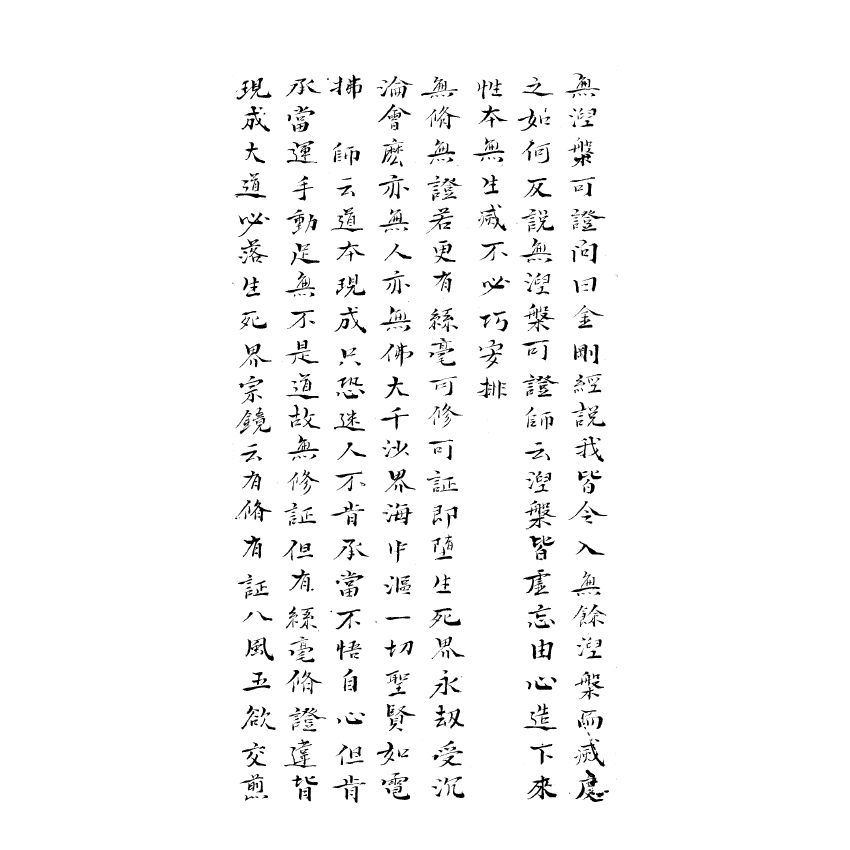 無湼槃可證問曰金剛經說我皆令入無餘湼槃而滅度
之如何反說無湼槃可證師云湼槃皆虛忘由心造下來
性本無生滅不必巧安排
無脩無證若更有絲毫可修可証即墮生死界永劫受沉
淪會麽亦無人亦無佛大千沙界海中漚一切聖賢如電
拂　師云道本現成只恐迷人不肯承當不悟自心但肯
承當運手動足無不是道故無修証但有絲毫脩證違背
現成大道必落生死界宗鏡云有脩有証八風五欲交煎